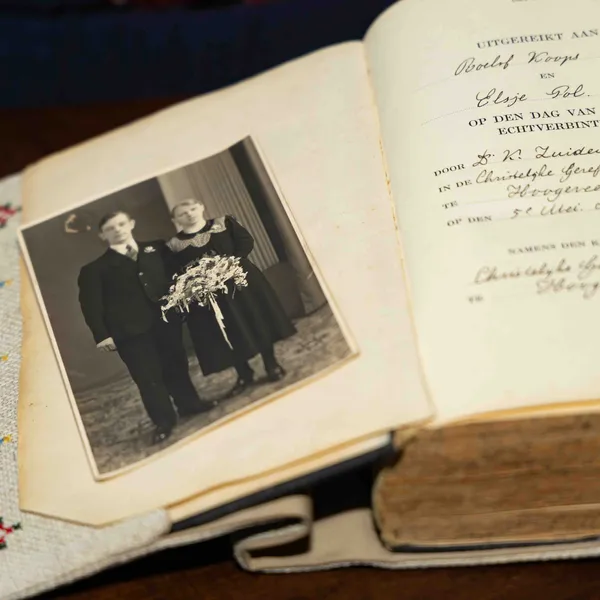 UITGEREIKT AAN
Roelof Koops
EN
Elsje Pol.
OP DEN DAG VAN
ECHTVERBINT
DOOR Ds K. Zuide
IN DE Christelijke Geref
TE Hoogevee
OP DEN 5e Mei.
NAMENS DEN K
Christelijke G
TE Hoog